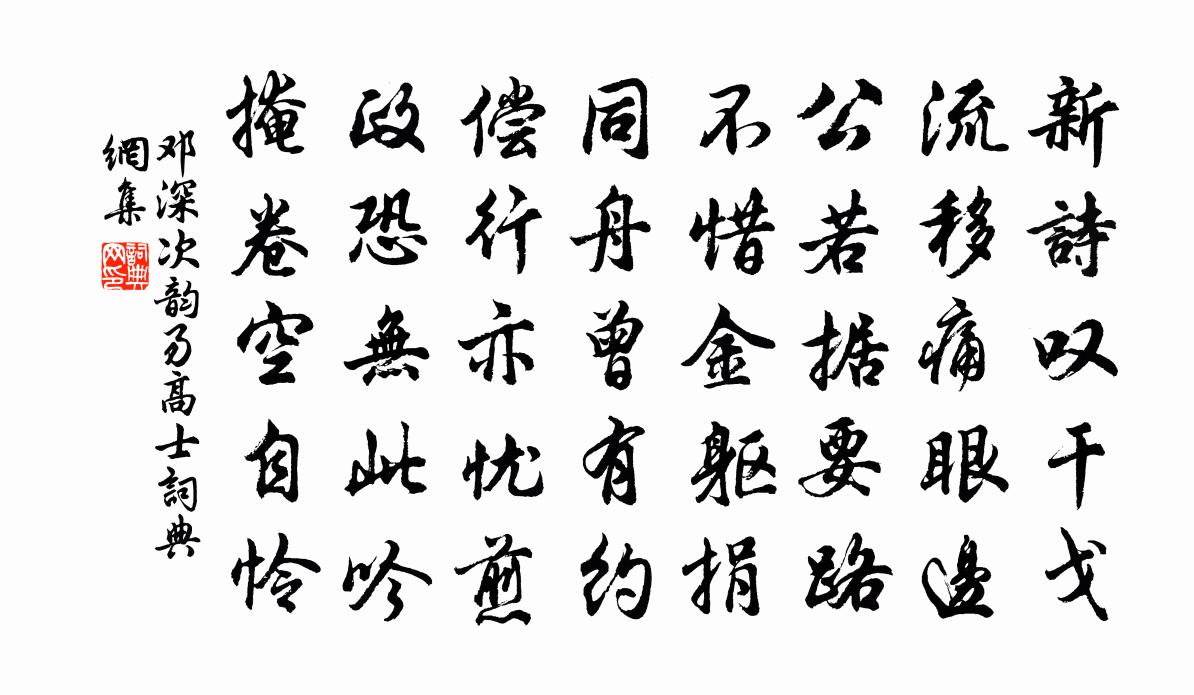 新詩叹干戈
流移痛眼邊
公若据要路
不惜金躯捐
同舟曾有约
偿行亦忧煎
政恐無此吟
掩卷空自怜
邓深次韵易高士詞典
網集
詞典
网印